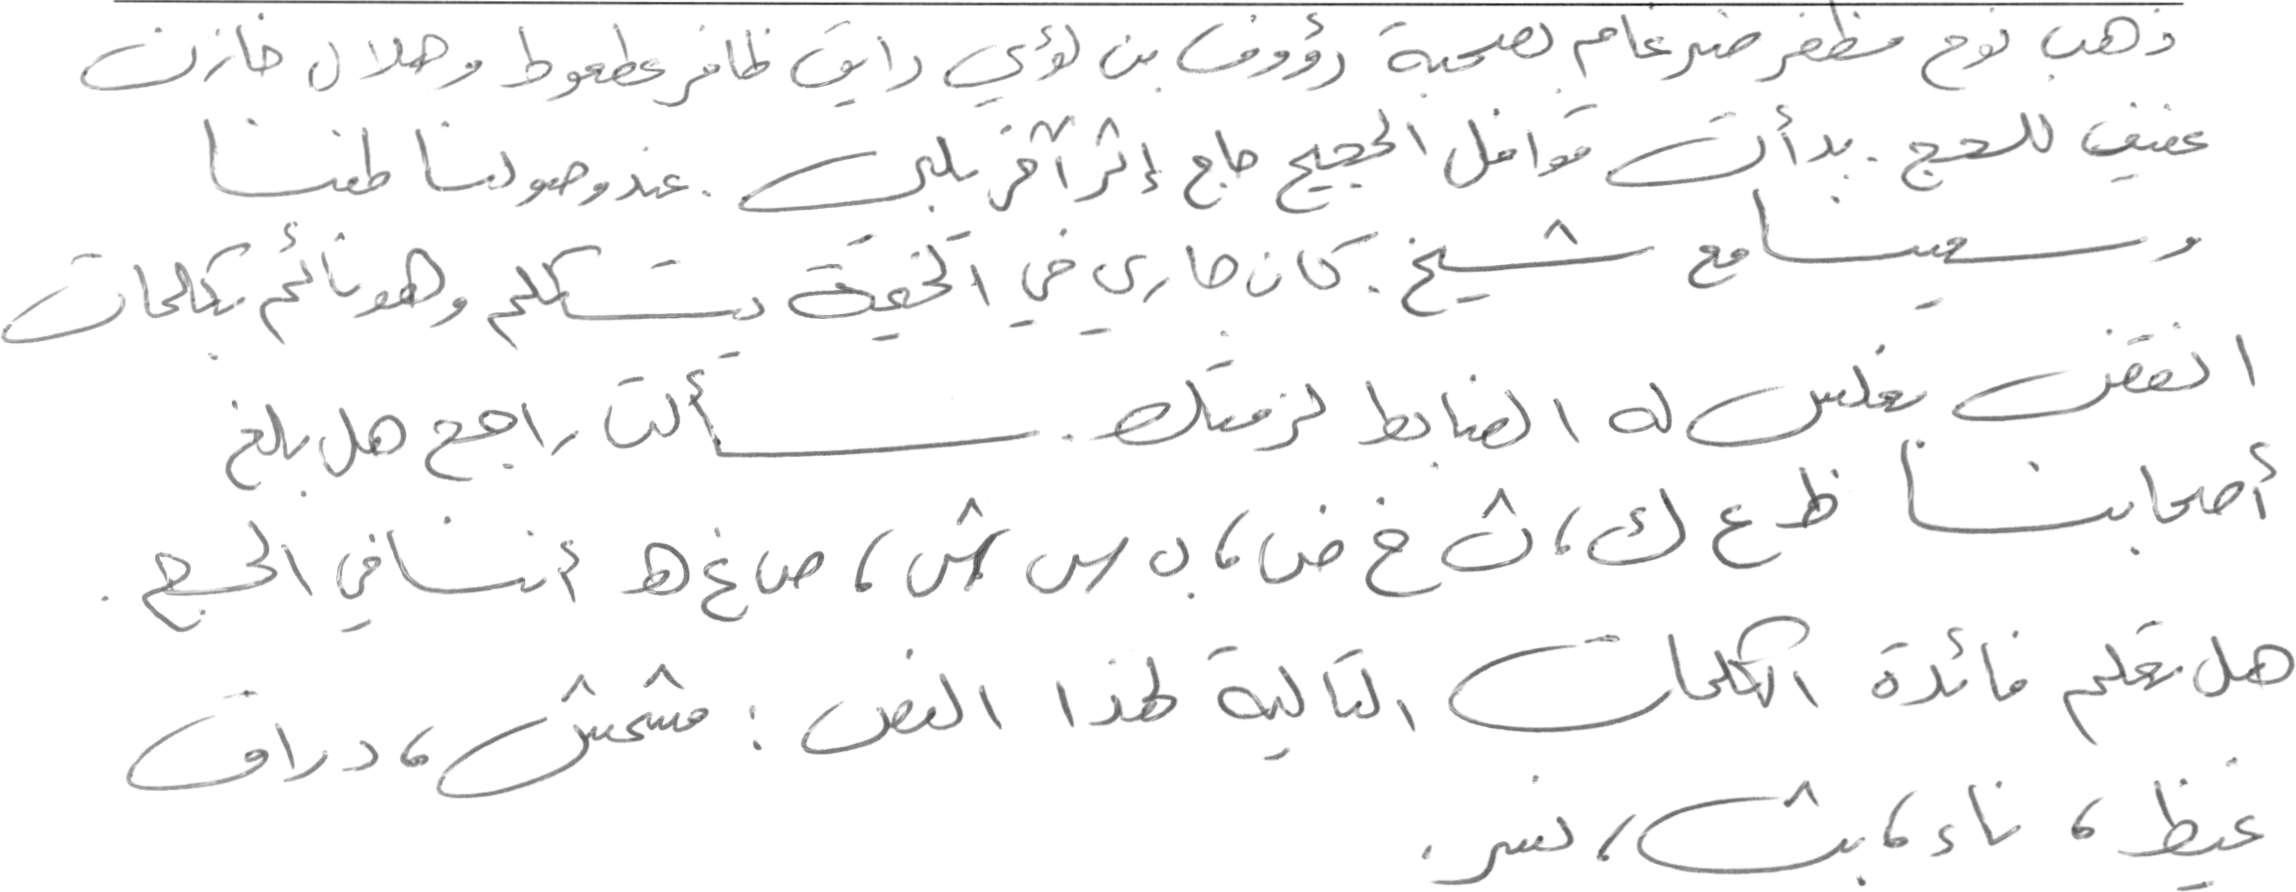 ذهب نوح مظفر ضرغام بصحبة رؤوف بن لؤي رايق ظافر عطعوط وهلال خازن
عفيف للحج . بدأت قوافل الحجيج حاج إثر آخر بلبى . عند وصولنا طفنا
وسعينا مع شيخ . كان جاري في الخيمة يتكلم وهو نائم بكلمات
القفف بغلس له الضابط لزمتك . سألت راجح هل بلغ
أصحابنا ظ ع ك ، ث خ ض ، ب س ش ، ص غ ه أننا في الحج .
هل تعلم فائدة الكلمات التالية لهذا النص : مشمش ، دراق
غيظ ، ناء ، بث ، نسر .